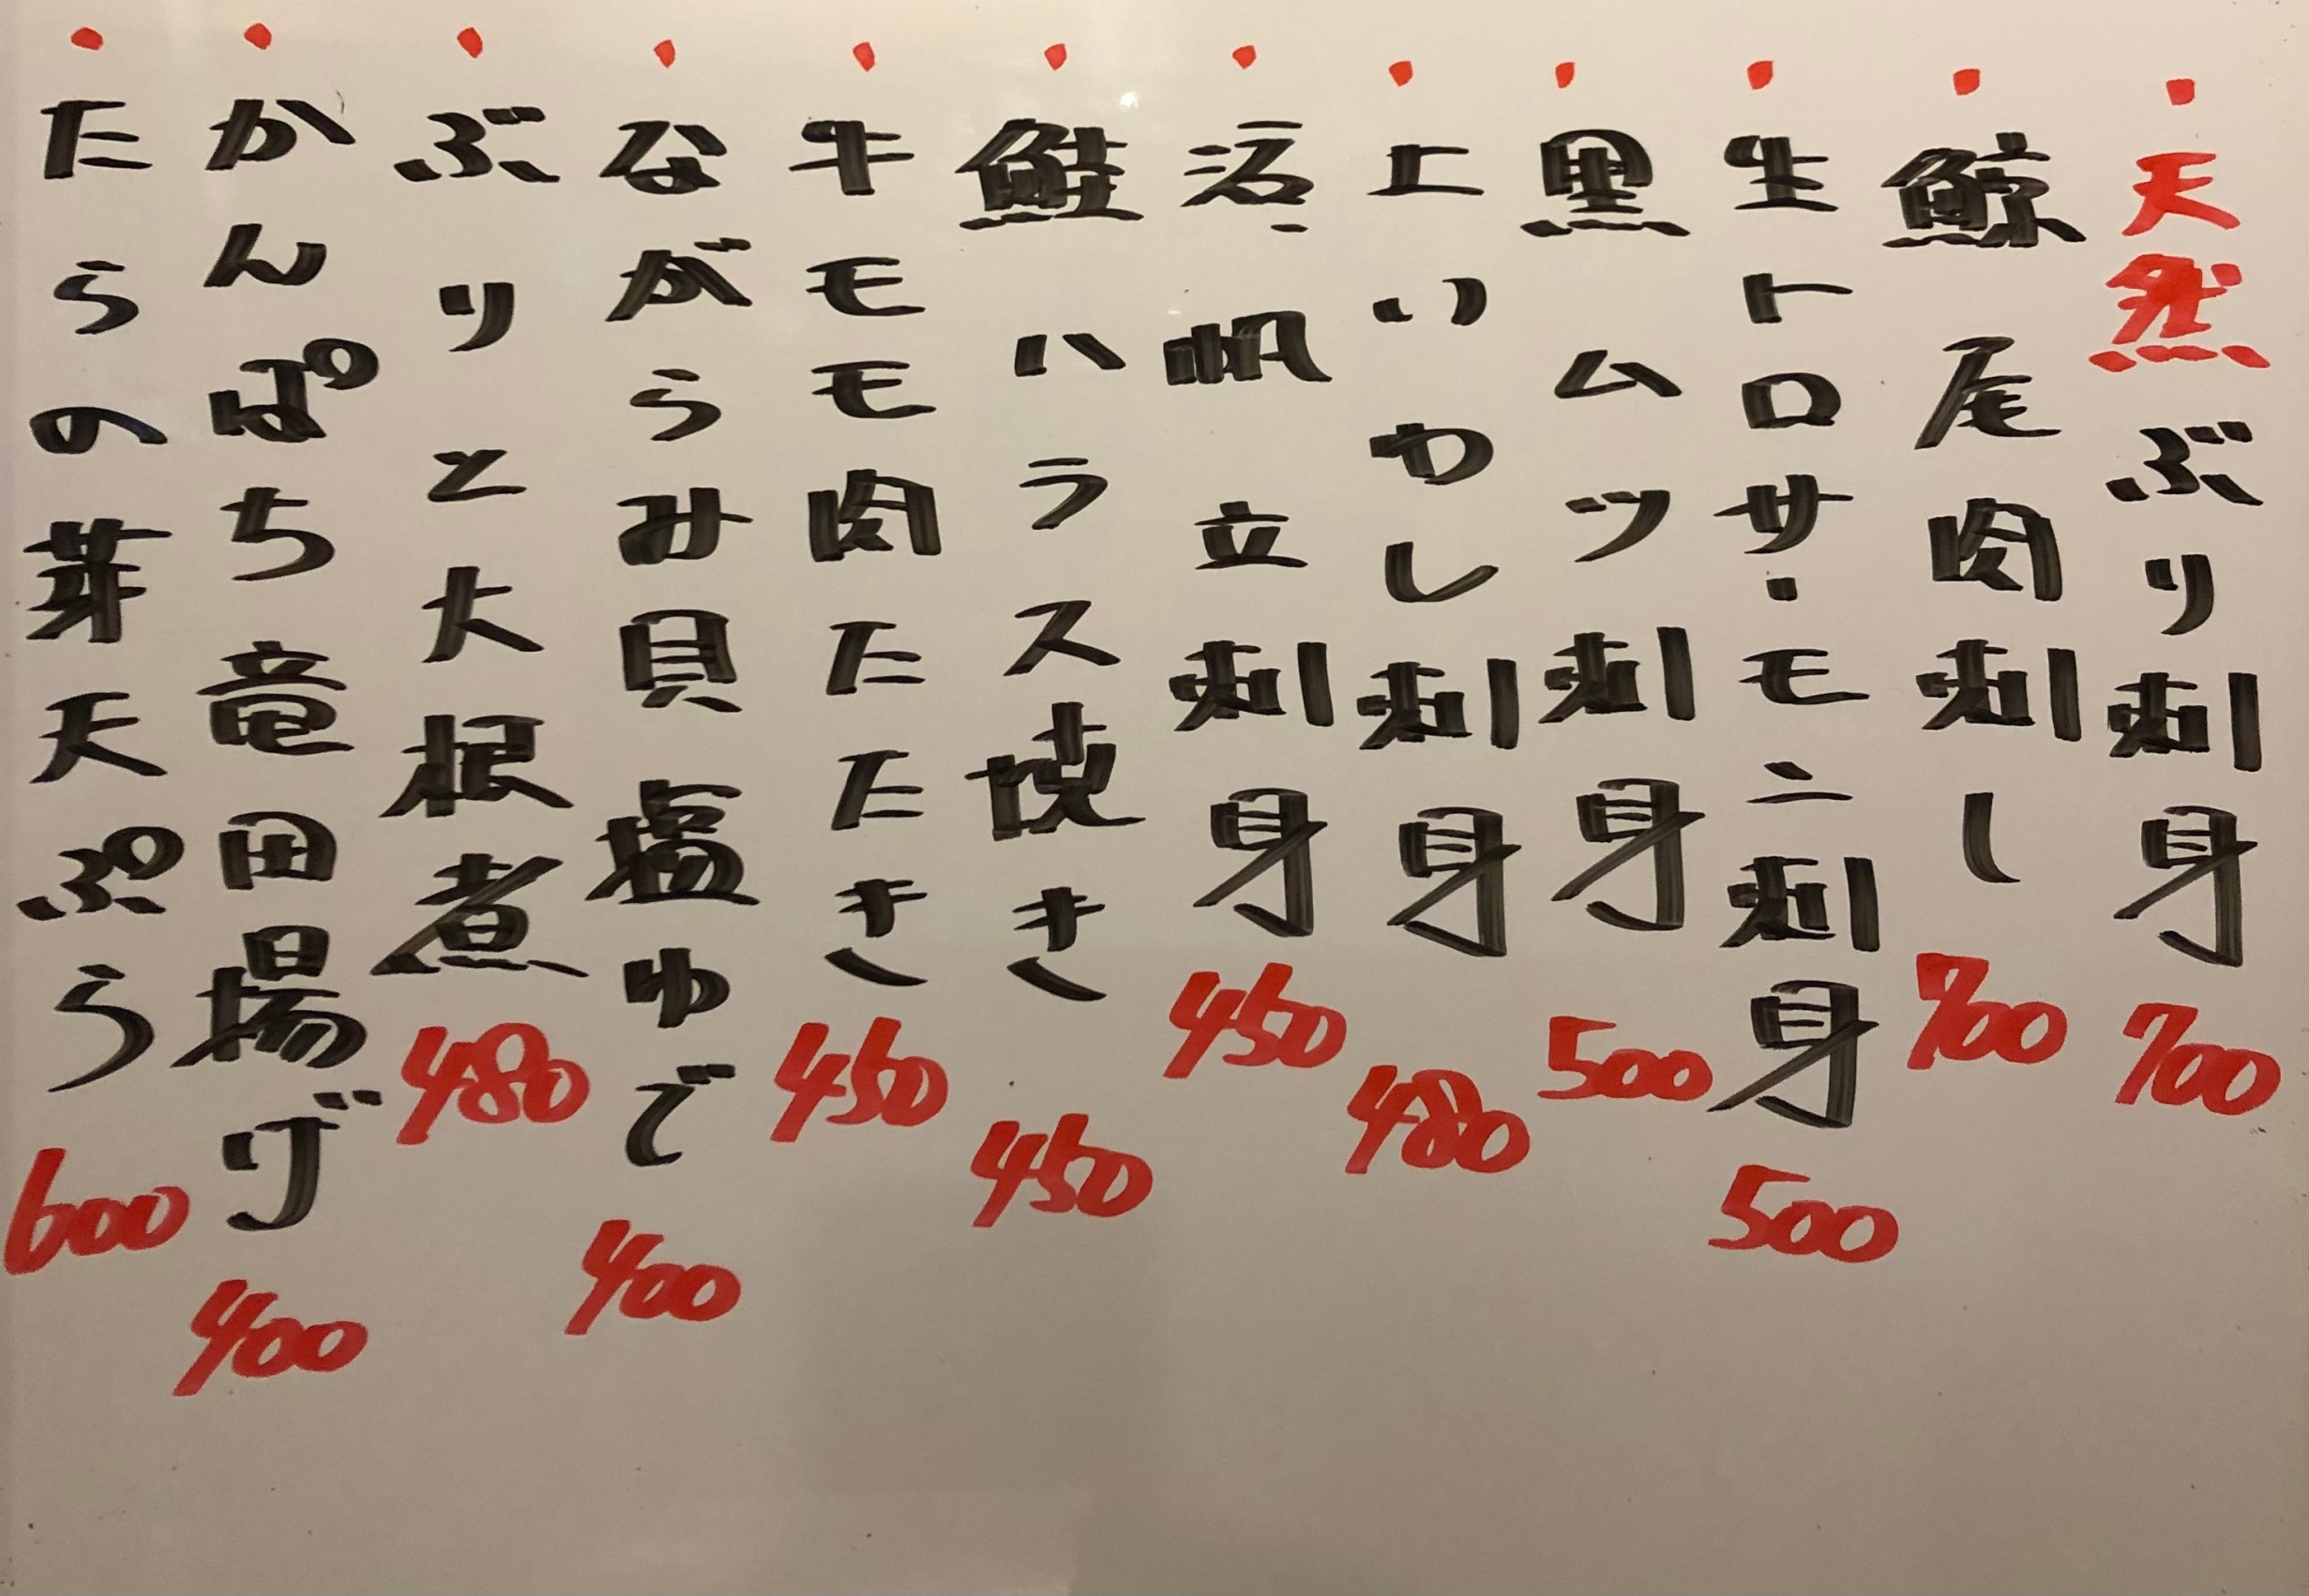 ・天然ぶり刺身 700
・鯨尾肉刺し 700
・生トロサーモン刺身 500
・黒ムツ刺身 500
・上いわし刺身 480
・活帆立刺身 450
・鮭ハラス焼き 450
・牛モモ肉たたき 450
・ながらみ貝塩ゆで 400
・ぶりと大根煮 480
・かんぱち竜田揚げ 400
・たらの芽天ぷら 600